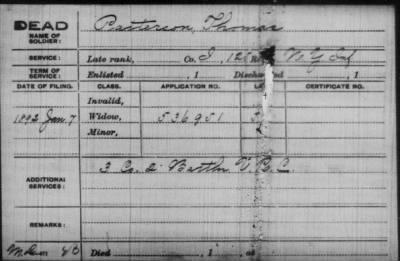 DEAD
NAME OF SOLDIER: Patterson, Thomas
SERVICE: Late rank, Co. I, 12 Reg N.Y. Inf
TERM OF SERVICE: Enlisted , 1 Discharged , 1
DATE OF FILING. CLASS. APPLICATION NO. CERTIFICATE NO.
Invalid,
1892 Jan 7 Widow, 536951
Minor,
ADDITIONAL SERVICES: 3 Co. 2 Battn V.R.C.
REMARKS:
Died , 1 , at